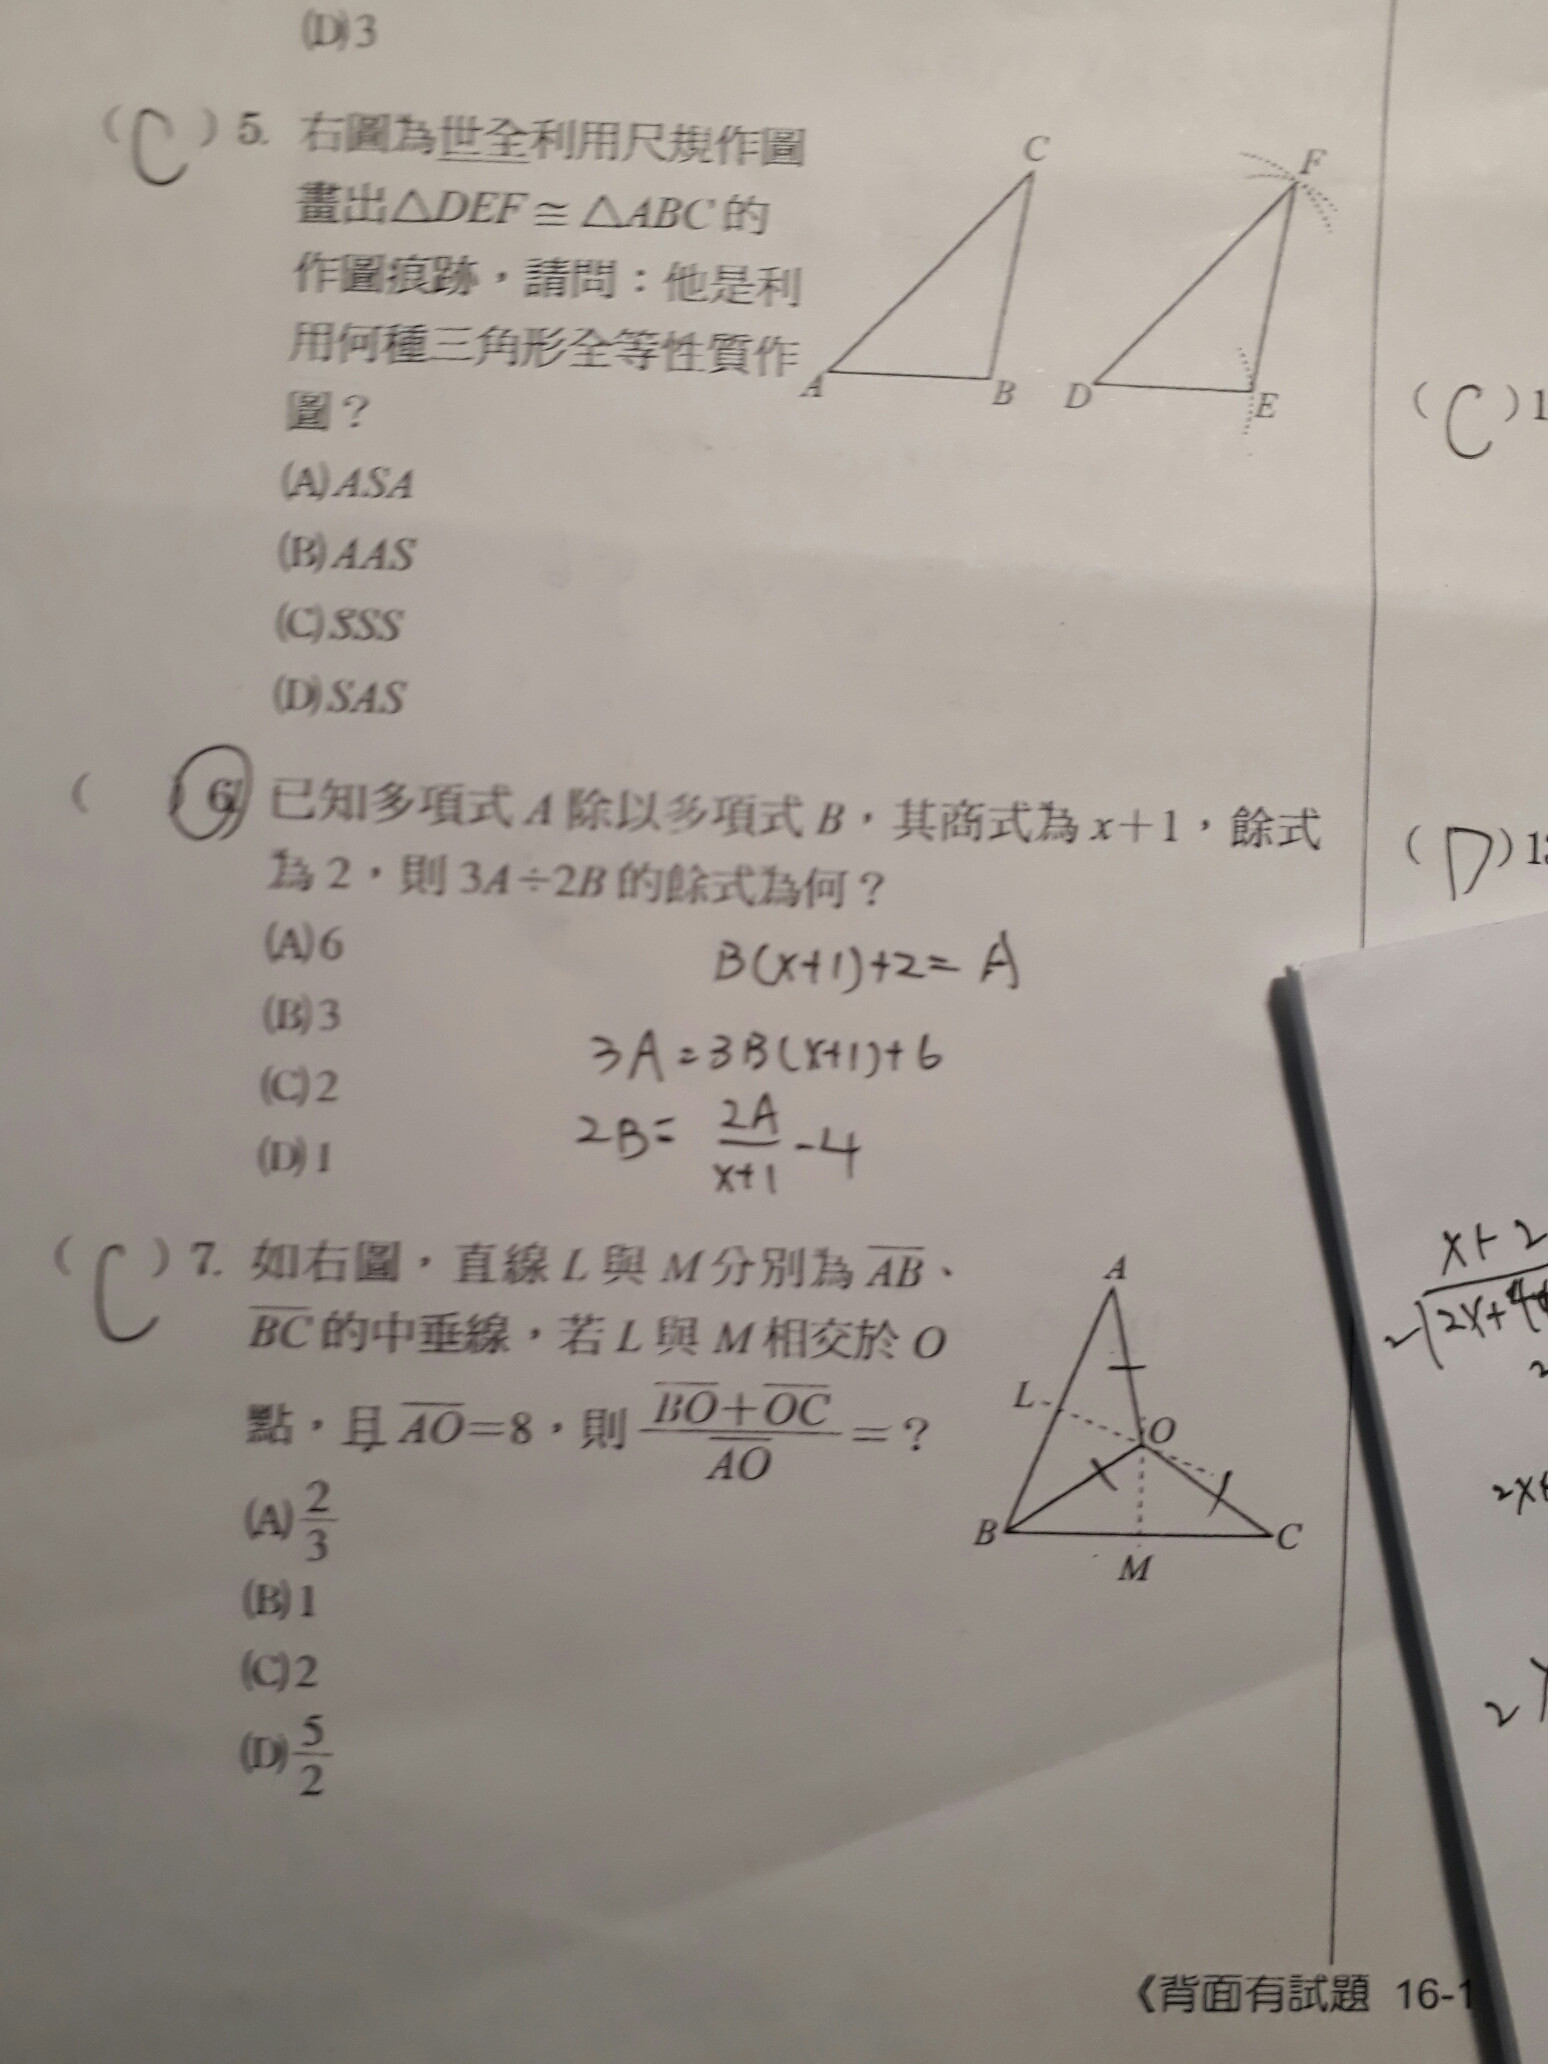 (D)3
( C ) 5. 右圖為世全利用尺規作圖
畫出△DEF≅△ABC的
作圖痕跡，請問：他是利
用何種三角形全等性質作
圖？
(A)ASA
(B)AAS
(C)SSS
(D)SAS
C
A
B
F
D
E
( ) 6. 已知多項式A除以多項式B，其商式為x+1，餘式
為2，則3A÷2B的餘式為何？
(A)6
(B)3
(C)2
(D)1
B(x+1)+2=A
3A=3B(x+1)+6
2B=2A/(x+1)-4
( C ) 7. 如右圖，直線L與M分別為AB、
BC的中垂線，若L與M相交於O
點，且AO=8，則(BO+OC)/AO=？
(A)2/3
(B)1
(C)2
(D)5/2
A
L
O
B
C
M
( C )1
( D )1
x+2
2
2x+4
2
《背面有試題 16-1